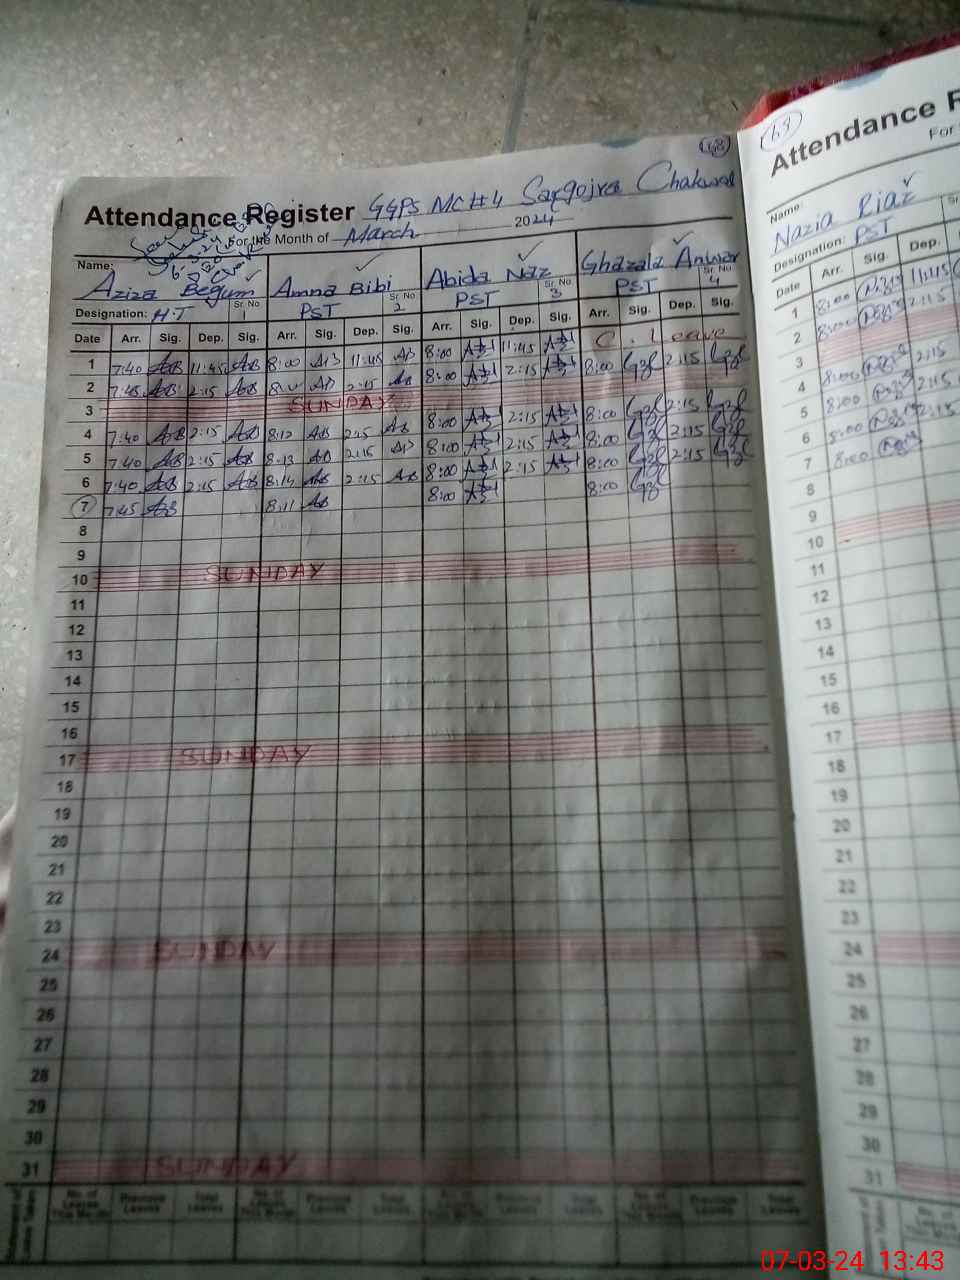 68
Attendance Register GGPS MC#4 Sargojra Chakwal
For the Month of March 2024
6-3-24
Name: Aziza Begum Amna Bibi Abida Naz Ghazala Anwar
Sr. No 1 Sr. No 2 Sr. No 3 Sr. No 4
Designation: H.T PST PST PST
Date Arr. Sig. Dep. Sig. Arr. Sig. Dep. Sig. Arr. Sig. Dep. Sig. Arr. Sig. Dep. Sig.
1 7:40 AB 11:45 AB 8:00 AB 11:45 AB 8:00 11:45 C. Leave
2 7:45 AB 2:15 AB 8:00 AB 2:15 AB 8:00 2:15 8:00 2:15
3 SUNDAY
4 7:40 AB 2:15 AB 8:12 AB 2:15 AB 8:00 2:15 8:00 2:15
5 7:40 AB 2:15 AB 8:13 AB 2:15 AB 8:00 2:15 8:00 2:15
6 7:40 AB 2:15 AB 8:14 AB 2:15 AB 8:00 2:15 8:00 2:15
7 7:45 AB 8:11 AB 8:00 8:00
8
9
10 SUNDAY
11
12
13
14
15
16
17 SUNDAY
18
19
20
21
22
23
24 SUNDAY
25
26
27
28
29
30
31 SUNDAY
No. of Leaves This Month Previous Leaves Total Leaves No. of Leaves This Month Previous Leaves Total Leaves No. of Leaves This Month Previous Leaves Total Leaves No. of Leaves This Month Previous Leaves Total Leaves
69
Attendance R
For
Name: Nazia Riaz
Designation: PST
Date Arr. Sig. Dep.
1 8:00 11:45
2 8:00 2:15
3
4 8:00 2:15
5 8:00 2:15
6 8:00 2:15
7 8:00
8
9
10
11
12
13
14
15
16
17
18
19
20
21
22
23
24
25
26
27
28
29
30
31
07-03-24 13:43